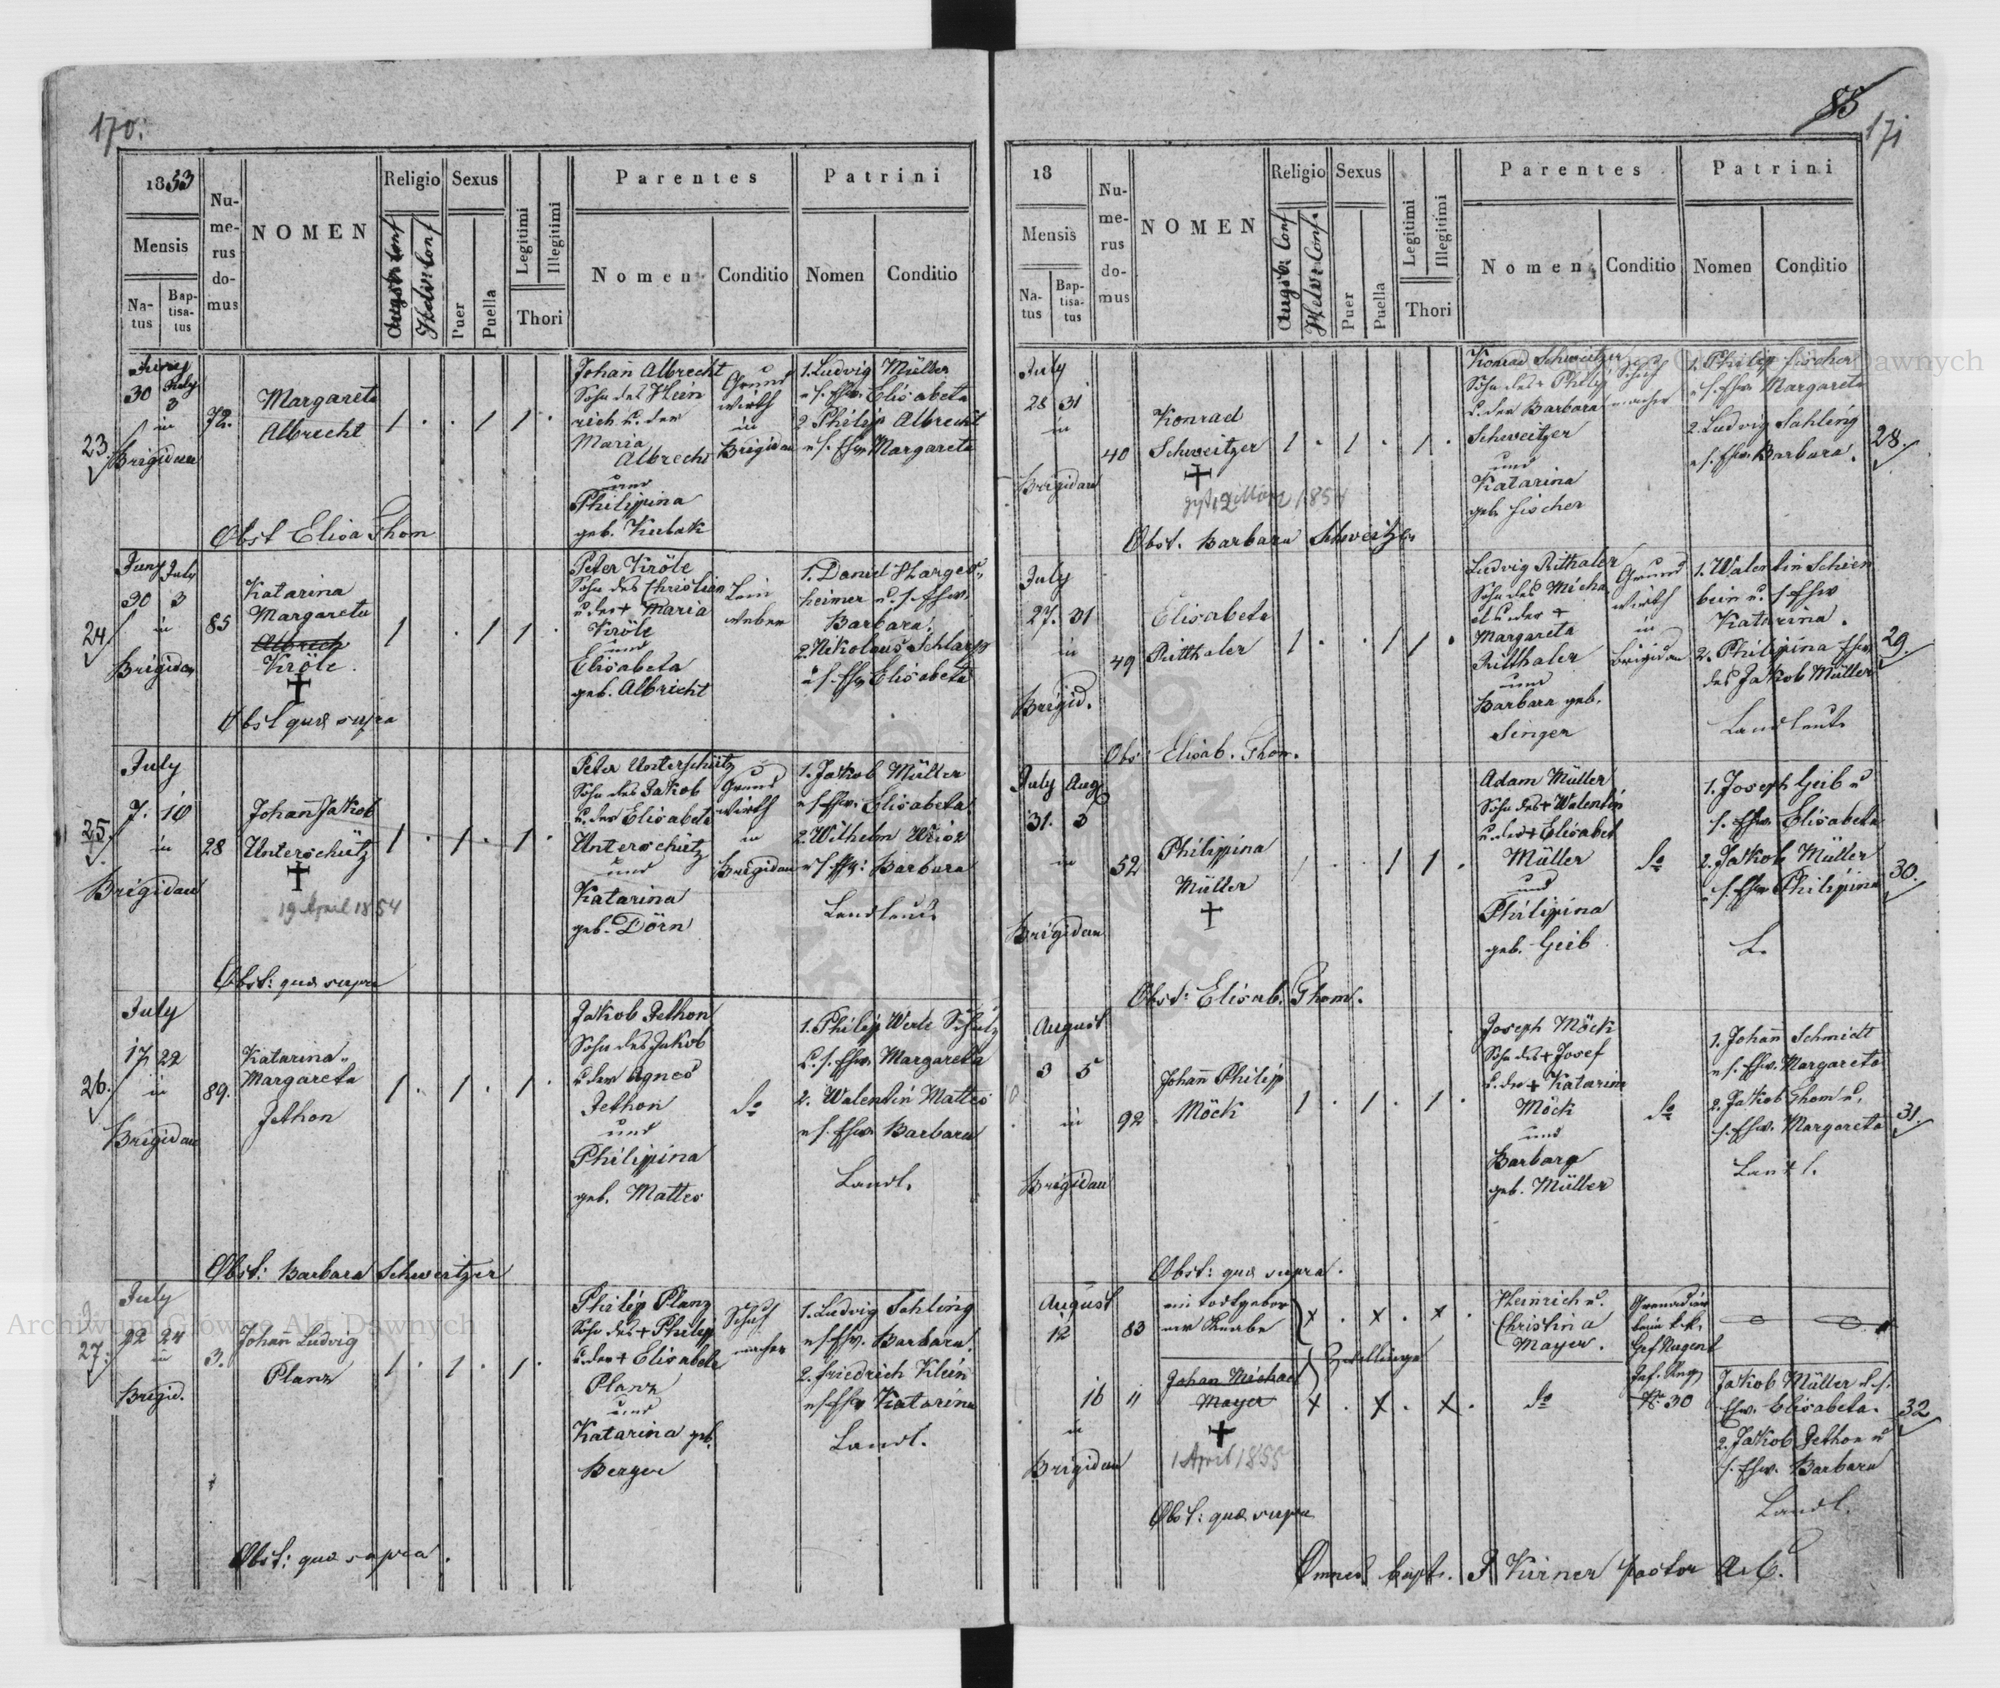 170.
1853
Mensis
Na-
tus
Bap-
tisa-
tus
Nu-
me-
rus
do-
mus
NOMEN
Religio
Augsb. Conf
Helv. Conf
Sexus
Puer
Puella
Legitimi
Illegitimi
Thori
Parentes
Nomen
Conditio
Patrini
Nomen
Conditio
23.
Juny
30 July
3
in
Brigidau
72.
Margareta
Albrecht
1 . . 1 1 .
Johann Albrecht
Sohn des Hein
rich u. der
Maria
Albrecht
und
Philippina
geb. Kubak
Grund
wirth
in
Brigidau
1. Ludvig Müller
u s. Ehw. Elisabeta
2. Philip Albrecht
u s. Ehw Margareta
Obst Elisa Thom
24.
Juny July
30 3
in
Brigidau
85
Katarina
Margareta
Albrich
Kröle.
1 . . 1 1 .
Peter Kröle
Sohn des Christian
u der + Maria
Kröle
und
Elisabeta
geb. Albricht
Lein
weber
1. Daniel
heimer u. s. Ehw.
Barbara.
2. Nikolaus Schlarp
u s. Ehw Elisabeta
Obst quæ supra
25.
July
7. 10
in
Brigidau
28
Johann Jakob
Unterschütz
19 April 1854
1 . 1 . 1 .
Peter Unterschütz
Sohn des Jakob
u. der Elisabeta
Unterschütz
und
Katarina
geb. Dörn
Grund
wirth
in
Brigidau
1. Jakob Müller
u s. Ehw. Elisabeta.
2. Wilhelm
u s. Ehw: Barbara
Landleute
Obst: quæ supra
26.
July
17 22
in
Brigidau
89.
Katarina
Margareta
Jethon
1 . 1 . 1 .
Jakob Jethon
Sohn des Jakob
u der Agnes
Jethon
und
Philippina
geb. Mattes
do
1. Philip Werle Schulz
u. s. Ehw. Margareta
2. Walentin Mattes
u s. Ehw. Barbara
Landl.
Obst: Barbara Schweitzer
27.
July
22 24
in
Brigid.
3.
Johann Ludvig
Planz
1 . 1 . 1 .
Philip Planz
Sohn des + Philip
u. der + Elisabeta
Planz
und
Katarina geb.
Berger
Schuh
macher
1. Ludvig Sahling
u s. Ehw. Barbara.
2. Friedrich Klein
u s. Ehw Katarina
Landl.
Obst: quæ supra.
85
171
18
Mensis
Na-
tus
Bap-
tisa-
tus
Nu-
me-
rus
do-
mus
NOMEN
Religio
Augsb. Conf
Helv. Conf.
Sexus
Puer
Puella
Legitimi
Illegitimi
Thori
Parentes
Nomen
Conditio
Patrini
Nomen
Conditio
July
28 31
in
Brigidau
40
Konrad
Schweitzer
1854
1 . 1 . 1 .
Konrad Schweitzer
Sohn des Philip
u. der Barbara
Schweitzer
und
Katarina
geb. Fischer
Schuh
macher
1. Philip Fischer
u s. Ehw. Margareta
2. Ludvig Sahling
u s. Ehw. Barbara.
28.
Obst. Barbara Schweitzer
July
27. 31
in
Brigid.
49
Elisabeta
Ritthaler
1 . . 1 1 .
Ludvig Ritthaler
Sohn des Micha
el u der +
Margareta
Ritthaler
und
Barbara geb.
Singer
Grund
wirth
in
Brigidau
1. Walentin Schien
bein u. s. Ehw
Katarina.
2. Philipina Ehw.
des Jakob Müller
Landleute
29.
Obs. Elisab. Thom.
July Aug
31. 3
in
Brigidau
52
Philippina
Müller
1 . . 1 1 .
Adam Müller
Sohn des + Walentin
u. der + Elisabet
Müller
und
Philippina
geb. Geib
do
1. Joseph Geib u
s. Ehw. Elisabeta
2. Jakob Müller
u s. Ehw Philippina
L.
30.
Obst: Elisab. Thom.
August
3 5
in
Brigidau
92
Johann Philip
Möck
1 . 1 . 1 .
Joseph Möck
Sohn des + Josef
u. der + Katarina
Möck
und
Barbara
geb. Müller
do
1. Johann Schmidt
u s. Ehw. Margareta
2. Jakob Thom u.
s. Ehw. Margareta
Landl.
31.
Obst: quæ supra.
August
12
83
ein todtgebor
ner Knabe
x . x . x .
Heinrich u.
Christina
Mayer.
Grenadier
beim k. k.
Grf Nugent
Inf. Reg
N. 30
Zwillinge
16
in
Brigidau
"
Johan Michael
Mayer
1 April 1855
x . x . x .
do
Jakob Müller u s.
Ehw. Elisabeta.
2. Jakob Jethon u
s. Ehw. Barbara
Landl.
32
Obst: quæ supra
Omnes bapt. J Kirner pastor A. C.
Archiwum Głowne Akt Dawnych